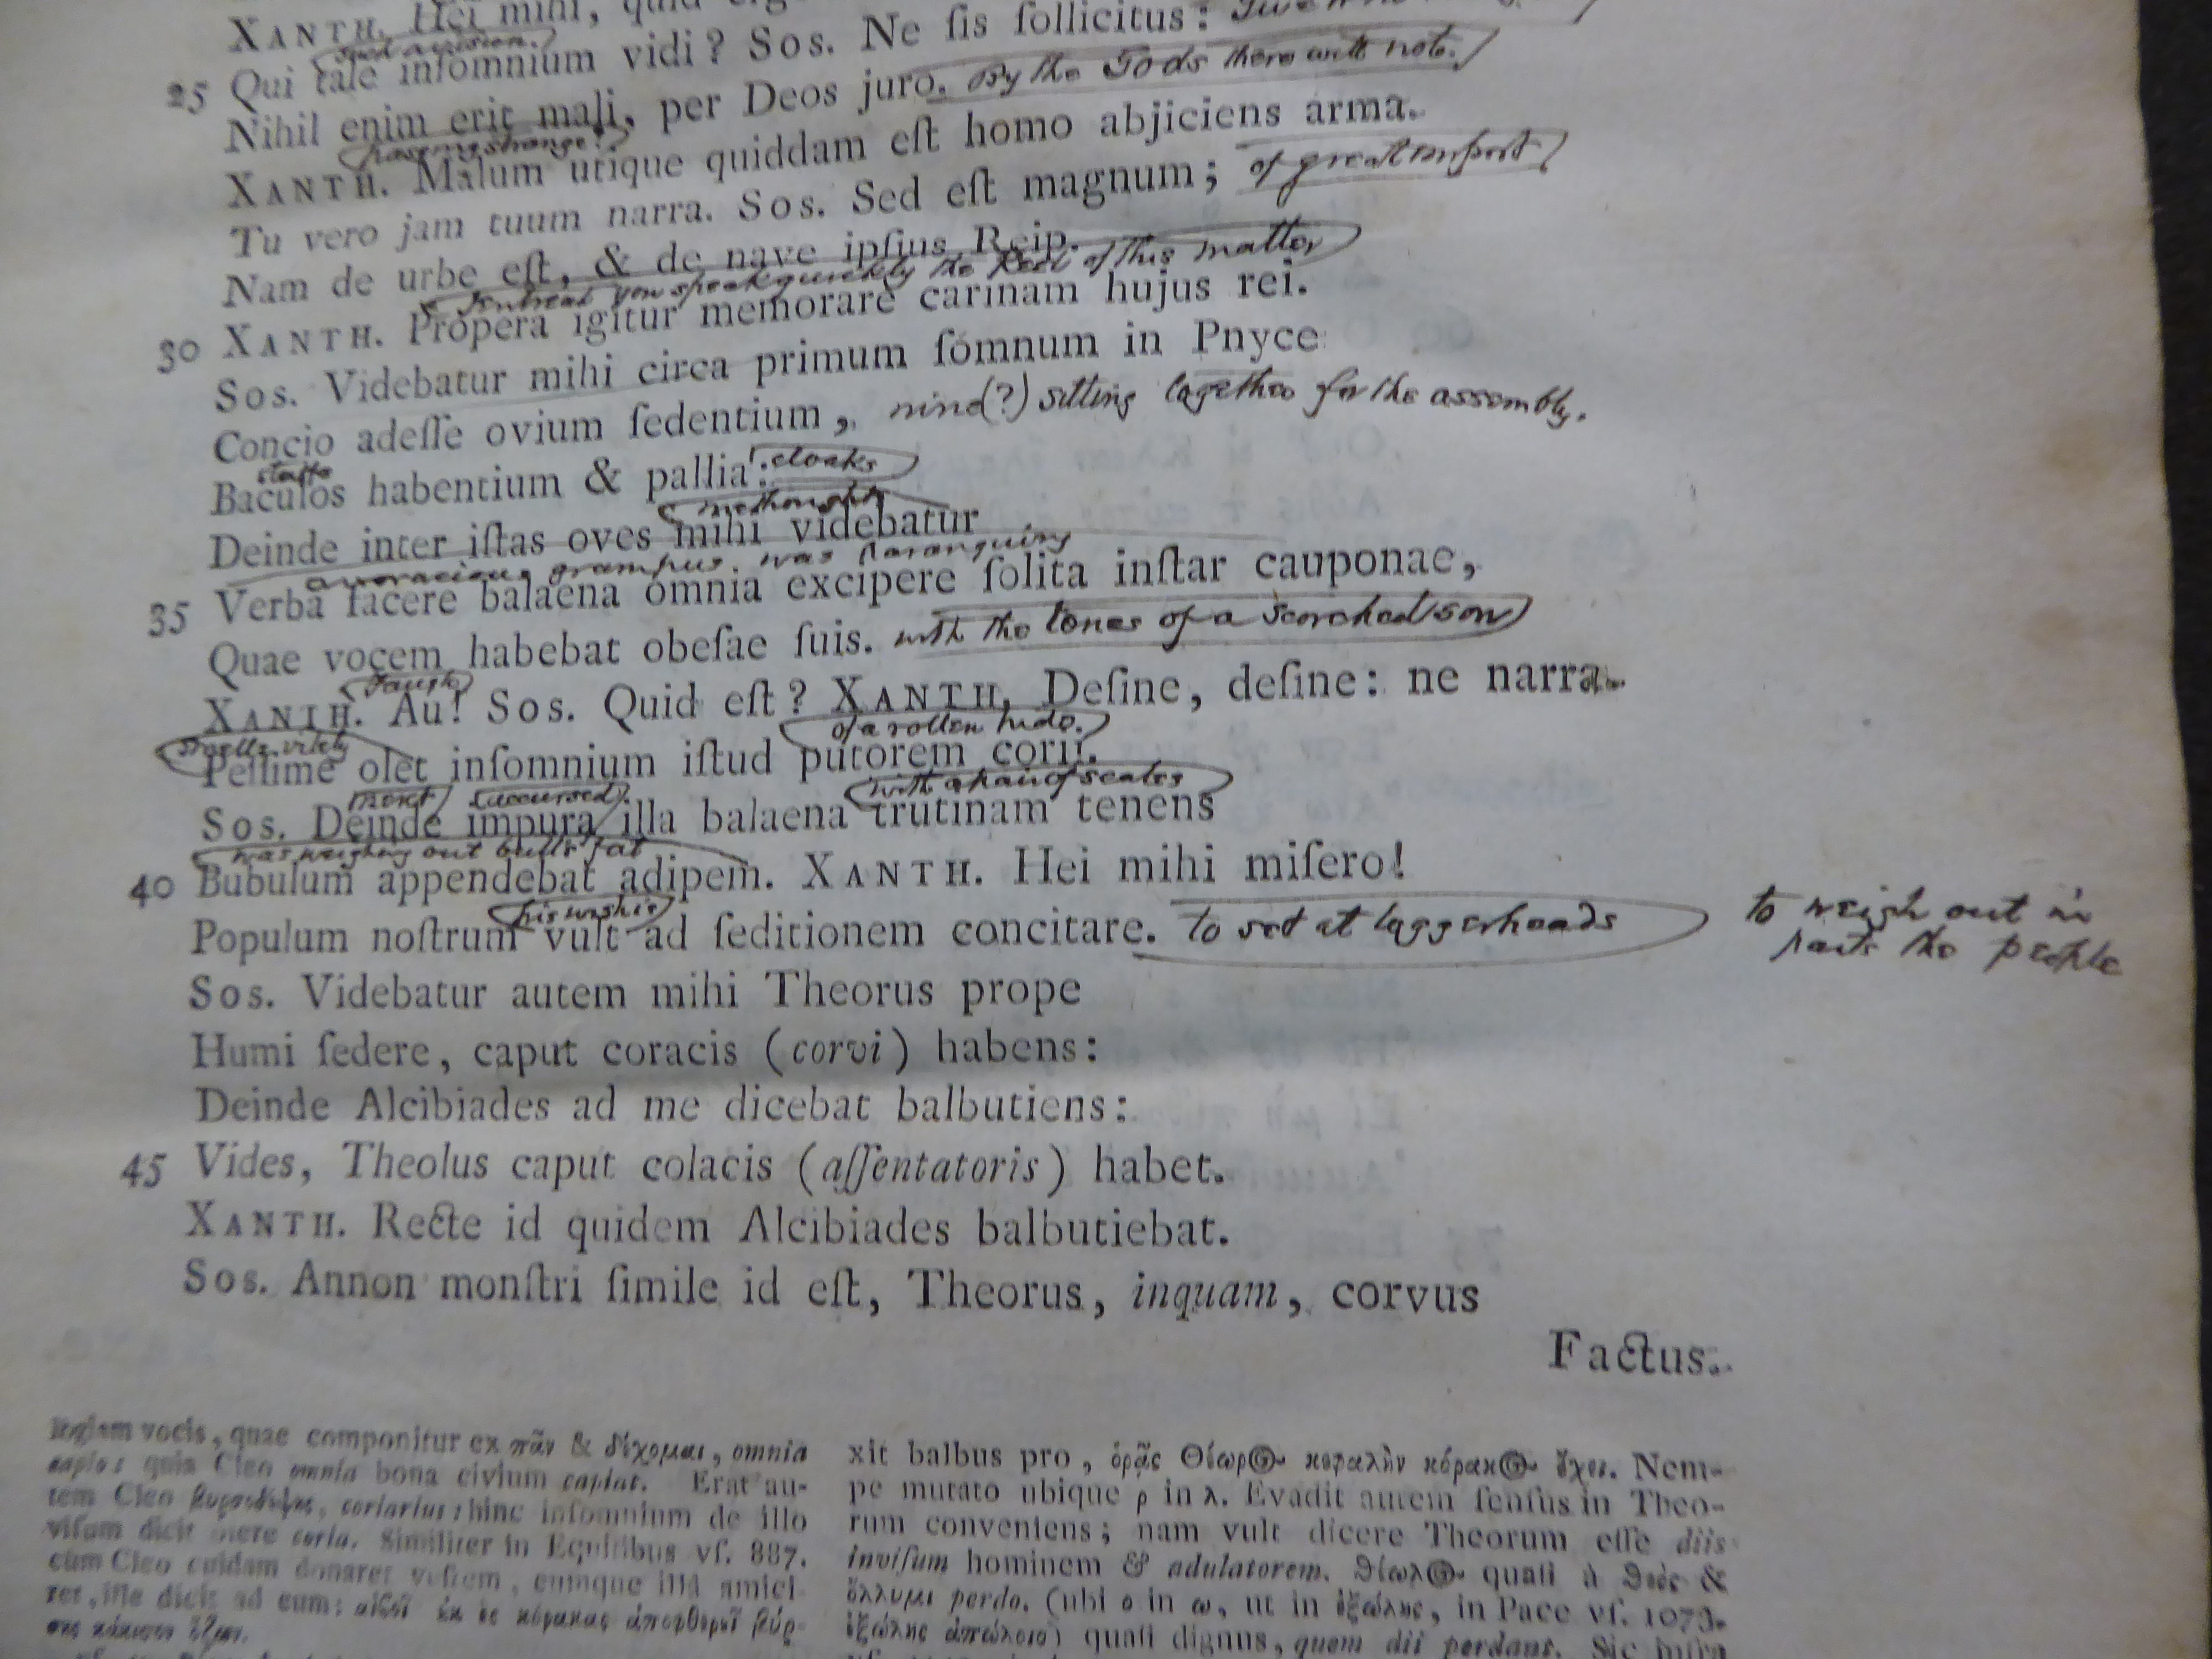 XANTH. Hei mihi, quid
such a vision.
25 Qui tale inſomnium vidi? Sos. Ne ſis ſollicitus:
Nihil enim erit mali, per Deos juro. By the Gods there will not.
passing strange!
XANTH. Malum utique quiddam eſt homo abjiciens arma.
Tu vero jam tuum narra. Sos. Sed eſt magnum; of great import
Nam de urbe eſt, & de nave ipſius Reip.
I intreat you speak quickly the keel of this matter
30 XANTH. Propera igitur memorare carinam hujus rei.
Sos. Videbatur mihi circa primum ſómnum in Pnyce
Concio adeſſe ovium ſedentium, nine(?) sitting together for the assembly.
staffs
Baculos habentium & pallia: cloaks
methought
Deinde inter iſtas oves mihi videbatur
a voracious grampus was haranguing
35 Verba facere balaena omnia excipere ſolita inſtar cauponae,
Quae vocem habebat obeſae ſuis. with the tones of a scorched sow
faugh
XANTH. Au! Sos. Quid eſt? XANTH. Deſine, deſine: ne narra.
of a rotten hide.
smells vilely
Peſſime olet inſomnium iſtud putorem corii.
with a pair of scales
next accursed
Sos. Deinde impura illa balaena trutinam tenens
was weighing out bull's fat
40 Bubulum appendebat adipem. XANTH. Hei mihi miſero!
his wish is
Populum noſtrum vult ad ſeditionem concitare. to set at loggerheads
to weigh out in
parts the people
Sos. Videbatur autem mihi Theorus prope
Humi ſedere, caput coracis (corvi) habens:
Deinde Alcibiades ad me dicebat balbutiens:
45 Vides, Theolus caput colacis (aſſentatoris) habet.
XANTH. Recte id quidem Alcibiades balbutiebat.
Sos. Annon monſtri ſimile id eſt, Theorus, inquam, corvus
Factus.
vocis, quae componitur ex πᾶν & δέχομαι, omnia
capio: quia Cleo omnia bona civium capiat. Erat au-
tem Cleo coriarius: hinc inſomnium de illo
viſum dicit olere coria. Similiter in Equitibus vſ. 887.
cum Cleo cuidam donaret veſtem, eumque illâ amici-
ret, ille dicit ad eum:
xit balbus pro, ὁρᾷς Θέωρος κεφαλὴν κόρακος ἔχει. Nem-
pe mutato ubique ρ in λ. Evadit autem ſenſus in Theo-
rum conveniens; nam vult dicere Theorum eſſe diis
inviſum hominem & adulatorem. Θέωλος quaſi à θεὸς &
ὄλλυμι perdo. (ubi ο in ω, ut in ἐξώλης, in Pace vſ. 1073.
ἐξώλης ἀπόλοιο) quaſi dignus, quem dii perdant. Sic infra